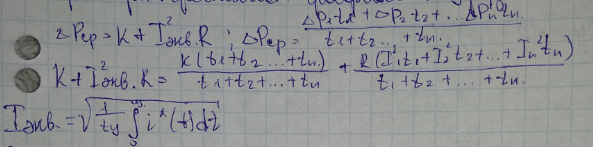 ΔPср = K + I²экв.R ; ΔPср = (ΔP₁t₁ + ΔP₂t₂ + ... ΔPₙtₙ) / (t₁+t₂ ... + tₙ.)
K + I²экв.R = K(t₁+t₂ ... + tₙ) / (t₁+t₂+...+tₙ) + R(I₁²t₁ + I₂²t₂ + ... + Iₙ²tₙ) / (t₁+t₂+...+tₙ.)
Iэкв. = √(1/tц ∫₀ i²(t)dt)